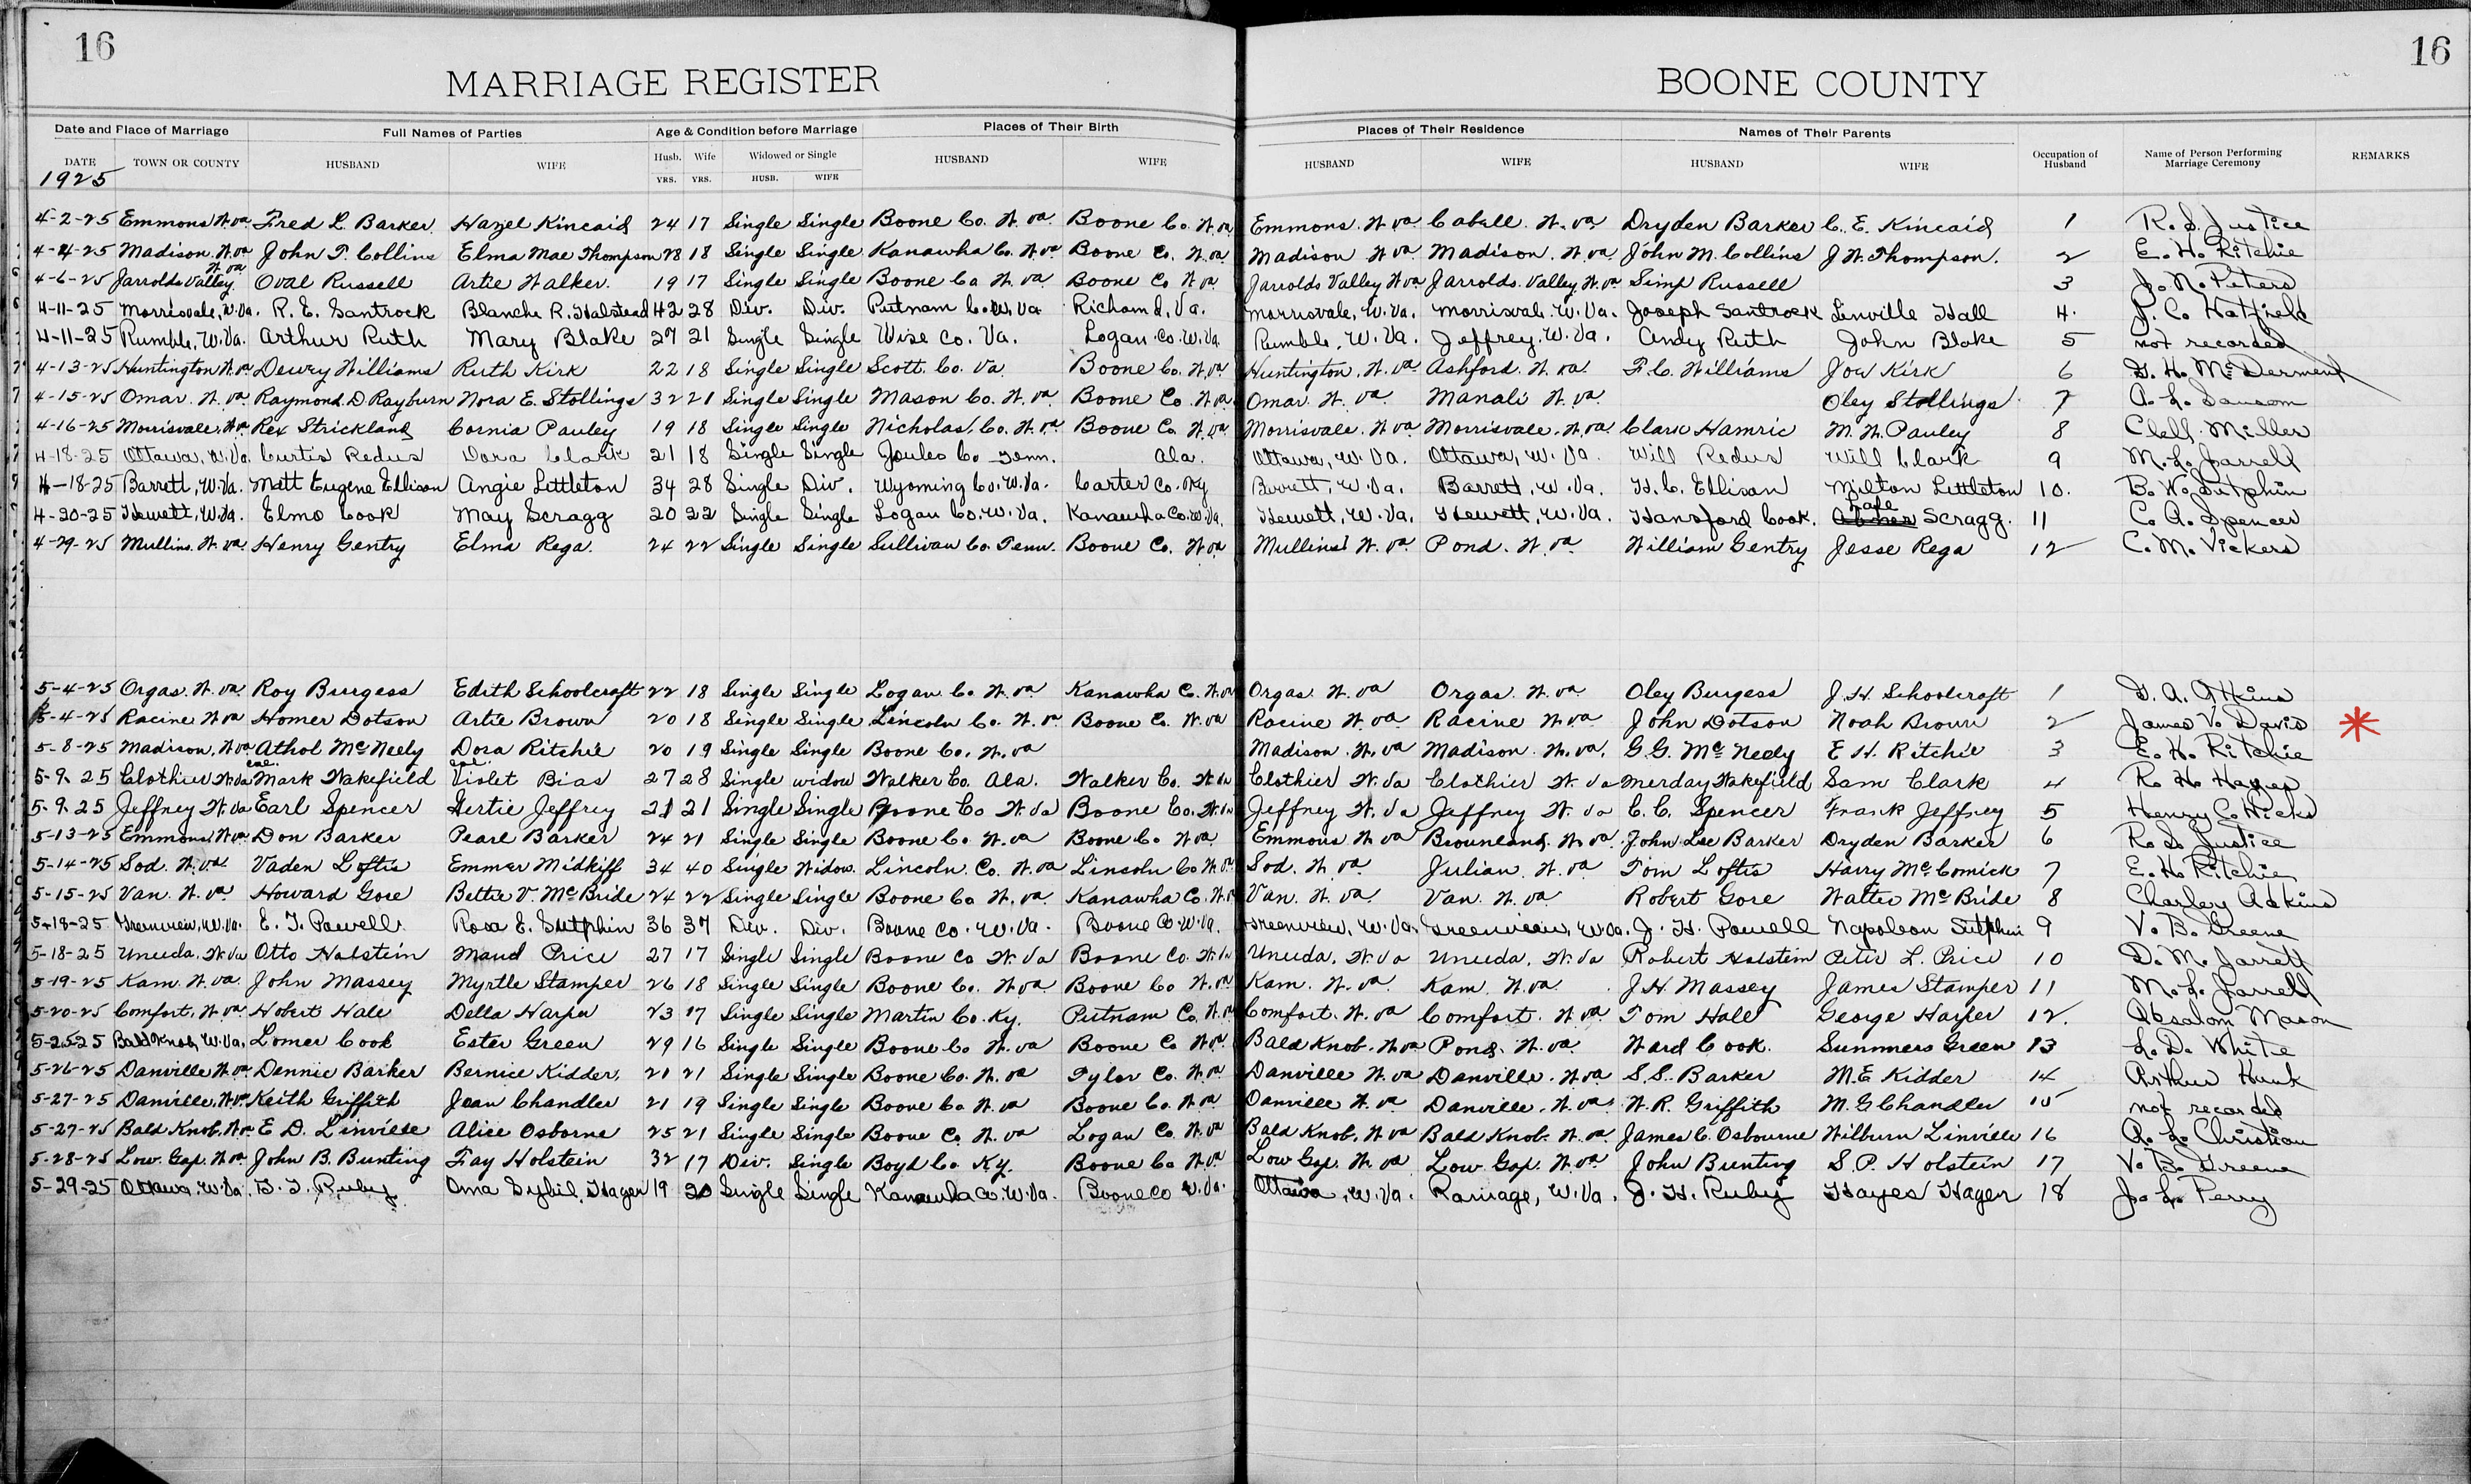 16 16
MARRIAGE REGISTER BOONE COUNTY
Date and Place of Marriage Full Names of Parties Age & Condition before Marriage Places of Their Birth Places of Their Residence Names of Their Parents
DATE TOWN OR COUNTY HUSBAND WIFE Husb. Wife Widowed or Single HUSBAND WIFE HUSBAND WIFE HUSBAND WIFE Occupation of Husband Name of Person Performing Marriage Ceremony REMARKS
1925 YRS. YRS. HUSB. WIFE
4-2-25 Emmons W.va Fred L. Barker Hazel Kincaid 24 17 Single Single Boone Co. W.va Boone Co. W.va Emmons. W.va Cabell. W.va Dryden Barker C. E. Kincaid 1 R. S. Justice
4-4-25 Madison. W.va John T. Collins Elma Mae Thompson 28 18 Single Single Kanawha Co. W.va Boone Co. W.va Madison W.va Madison. W.va John M. Collins J. W. Thompson. 2 E. H. Ritchie
4-6-25 Jarrolds Valley W.va Oval Russell Artie Walker. 19 17 Single Single Boone Co W.va Boone Co W.va Jarrolds Valley W.va Jarrolds. Valley, W.va Simp Russell 3 J. N. Peters
4-11-25 Morrisvale, W.Va. R. E. Santrock Blanche R. Halstead 42 28 Div. Div. Putnam Co. W.Va Richamd, Va. Morrisvale, W.Va. Morrisvale. W.Va. Joseph Santrock Linville Hall 4. P. C. Hatfield
4-11-25 Rumble, W.Va. Arthur Ruth Mary Blake 27 21 Single Single Wise Co. Va. Logan Co. W.Va. Rumble, W.Va. Jeffrey. W.Va. Andy Ruth John Blake 5 not recorded
4-13-25 Huntington W.va Dewey Williams Ruth Kirk 22 18 Single Single Scott. Co. Va. Boone Co. W.va Huntington, W.va Ashford. W.va F. C. Williams Joe Kirk 6 G. H. McDerment
4-15-25 Omar. W.va Raymond D Rayburn Nora E. Stollings 32 21 Single Single Mason Co. W.va Boone Co. W.va Omar. W.va Manali W.va Oley Stollings 7 A. L. Sansom
4-16-25 Morrisvale, W.va Rex Strickland Cornia Pauley 19 18 Single Single Nicholas. Co. W.va Boone Co W.va Morrisvale. W.va Morrisvale. W.va Clark Hamric M. W. Pauley 8 Clell Miller
4-18-25 Ottawa, W.Va. Curtis Redus Dora Clark 21 18 Single Single Joules Co Tenn. Ala. Ottawa, W.Va. Ottawa, W.Va. Will Redus Will Clark 9 M. L. Jarrell
4-18-25 Barrett, W.Va. Matt Eugene Ellison Angie Littleton 34 28 Single Div. Wyoming Co. W.Va. Carter Co. Ky Barrett, W.Va. Barrett, W.Va. H. C. Ellison Milton Littleton 10. B. W. Sutphin
4-20-25 Hewett, W.Va. Elmo Cook May Scragg 20 22 Single Single Logan Co. W.Va. Kanawha Co. W.Va. Hewett, W.Va. Hewett, W.Va. Hansford Cook. Scragg. 11 C. A. Spencer
4-29-25 Mullins. W.va Henry Gentry Elma Rega. 24 22 Single Single Sullivan Co. Tenn. Boone Co. W.va Mullins W.va Pond. W.va William Gentry Jesse Rega 12 C. M. Vickers
5-4-25 Orgas. W.va Roy Burgess Edith Schoolcraft 22 18 Single Single Logan Co W.va Kanawha C. W.va Orgas. W.va Orgas. W.va Oley Burgess J. H. Schoolcraft 1 G. A. Atkins
5-4-25 Racine W.va Homer Dotson Artie Brown 20 18 Single Single Lincoln Co. W.va Boone Co. W.va Racine W.va Racine W.va John Dotson Noah Brown 2 James V. Davis *
5-8-25 Madison, W.va Athol McNeely Dora Ritchie 20 19 Single Single Boone Co. W.va Madison. W.va Madison. W.va. G. G. McNeely E H. Ritchie 3 E. H. Ritchie
5-9-25 Clothier W.Va col. Mark Wakefield col. Violet Bias 27 28 Single widow Walker Co. Ala. Walker Co. Clothier W.Va Clothier W.Va Merday Wakefield Sam Clark 4 R. H. Hager
5-9-25 Jeffrey W.Va Earl Spencer Gertie Jeffrey 21 21 Single Single Boone Co W.Va Boone Co. W.Va Jeffrey W.Va Jeffrey W.Va C. C. Spencer Frank Jeffrey 5 Henry C. Hicks
5-13-25 Emmons W.va Don Barker Pearl Barker 24 21 Single Single Boone Co. W.va Boone Co W.va Emmons W.va Brounland. W.va. John Lee Barker Dryden Barker 6 R. S. Justice
5-14-25 Sod. W.va. Vaden Loftis Emmer Midkiff 34 40 Single Widow. Lincoln. Co. W.va Lincoln Co W.va Sod. W.va Julian. W.va Tom Loftis Harry McComick 7 E. H. Ritchie
5-15-25 Van. W.va Howard Gore Bettie V. McBride 24 22 Single Single Boone Co W.va Kanawha C. W.va Van. W.va. Van. W.va Robert Gore Walter McBride 8 Charley Adkins
5-18-25 Greenview, W.Va. E. T. Powell Rosa E. Sutphin 36 37 Div. Div. Boone Co. W.Va. Boone Co W.Va. Greenview, W.Va. Greenview, W.Va. J. H. Powell Napoleon Sutphin 9 V. B. Greene
5-18-25 Uneeda. W.Va Otto Holstein Maud Price 27 17 Single Single Boone Co W.Va Boone Co. W.Va Uneeda, W.Va Uneeda, W.Va Robert Holstein Peter L. Price 10 D. M. Jarrett
5-19-25 Kam. W.va. John Massey Myrtle Stamper 26 18 Single Single Boone Co. W.va Boone Co W.va Kam. W.va. Kam. W.va. J H. Massey James Stamper 11 M. L. Jarrell
5-20-25 Comfort, W.va Hobert Hale Della Harper 23 17 Single Single Martin Co. Ky. Putnam Co. W.va Comfort. W.va Comfort. W.va Tom Hale George Harper 12. Absalom Mason
5-25-25 Bald Knob, W.Va. Lomer Cook Ester Green 29 16 Single Single Boone Co W.va Boone Co W.va Bald Knob. W.va Pond. W.va Ward Cook. Summers Green 13 L. D. White
5-26-25 Danville W.va Dennie Barker Bernice Kidder, 21 21 Single Single Boone Co. W.va Tyler Co. W.va Danville W.va Danville. W.va S. S. Barker M. E Kidder 14 Arthur Hank
5-27-25 Danville, W.va Keith Griffith Jean Chandler 21 19 Single Single Boone Co W.va Boone Co. W.va Danville W.va Danville. W.va W. R. Griffith M. G Chandler 15 not recorded
5-27-25 Bald Knob, W.va E D. Linville Alice Osborne 25 21 Single Single Boone C. W.va Logan Co W.va Bald Knob, W.va Bald Knob. W.va James C. Osbourne Wilburn Linville 16 A. L. Christian
5-28-25 Low. Gap. W.va John B. Bunting Fay Holstein 32 17 Div. Single Boyd Co Ky. Boone Co W.va Low Gap. W.va Low. Gap. W.va John Bunting S. P. Holstein 17 V. B. Greene
5-29-25 Ottawa, W.Va. Ruby Oma Sybil. Hager 19 20 Single Single Kanawha Co. W.Va. Boone Co W.Va. Ottawa, W.Va. Ramage, W.Va. J. H. Ruby Hayes Hager 18 J. L. Perry